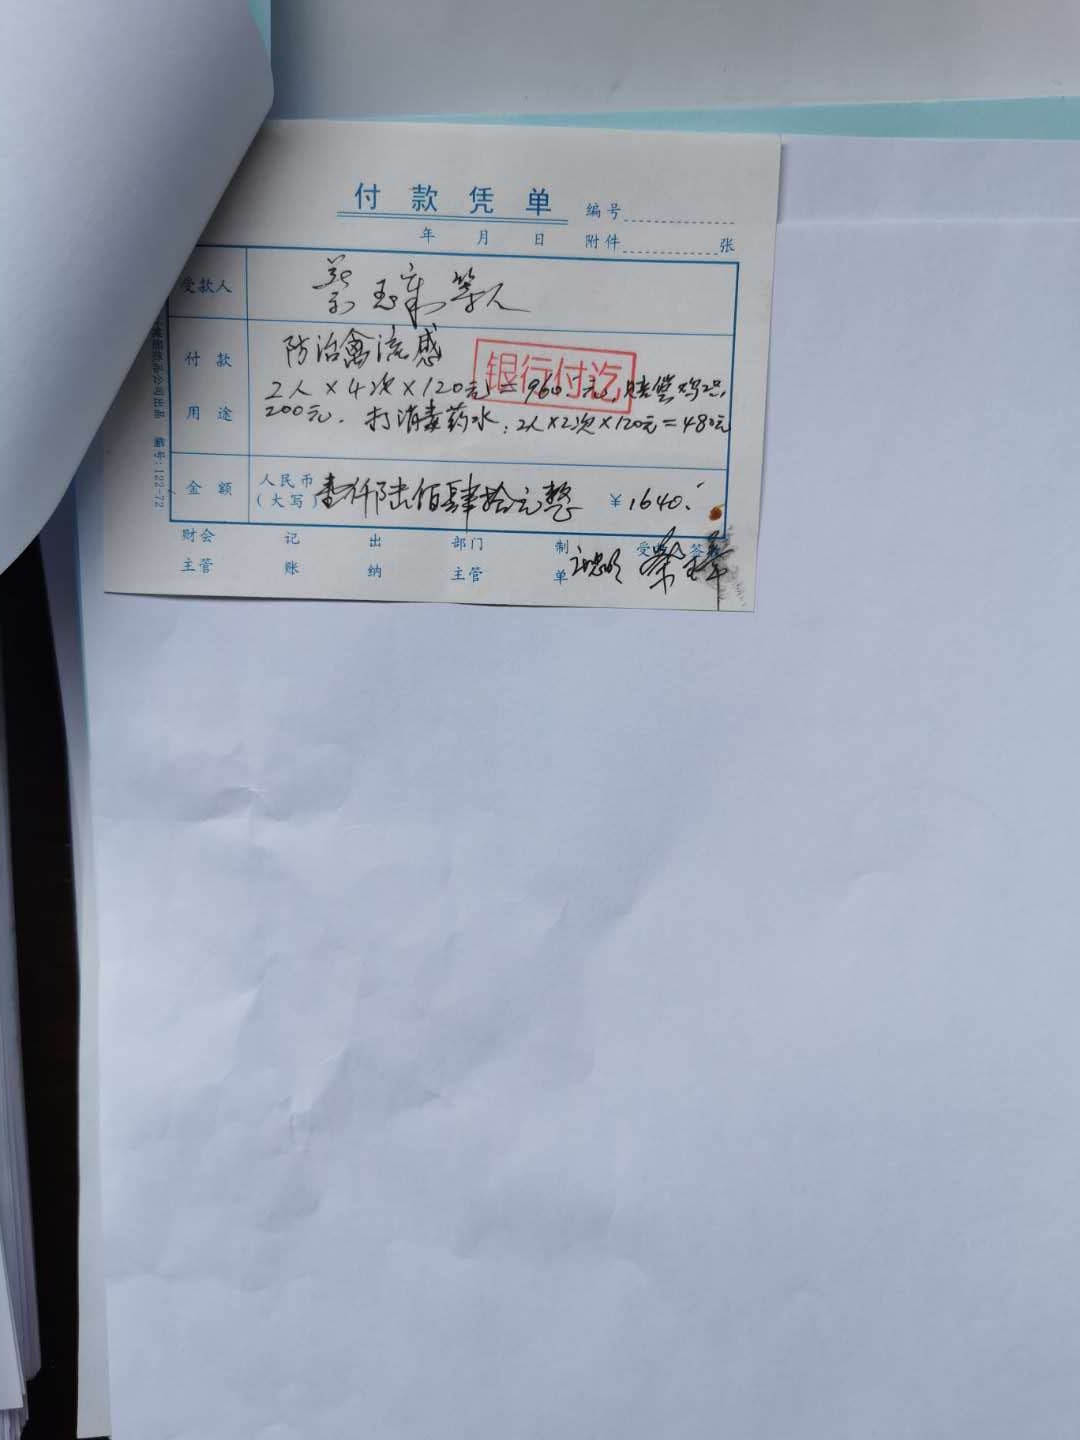 付款凭单
编号
年 月 日
附件 张
受款人
等人
付款
用途
防治禽流感
银行付讫
2人×4次×120元=960.元,赔偿鸡只,
200元. 打消毒药水:2人×2次×120元=480元
金额
人民币
(大写)
壹仟陆佰肆拾元整
¥1640.-
财会
主管
记
账
出
纳
部门
主管
制
单
受款
签
编号:122-72